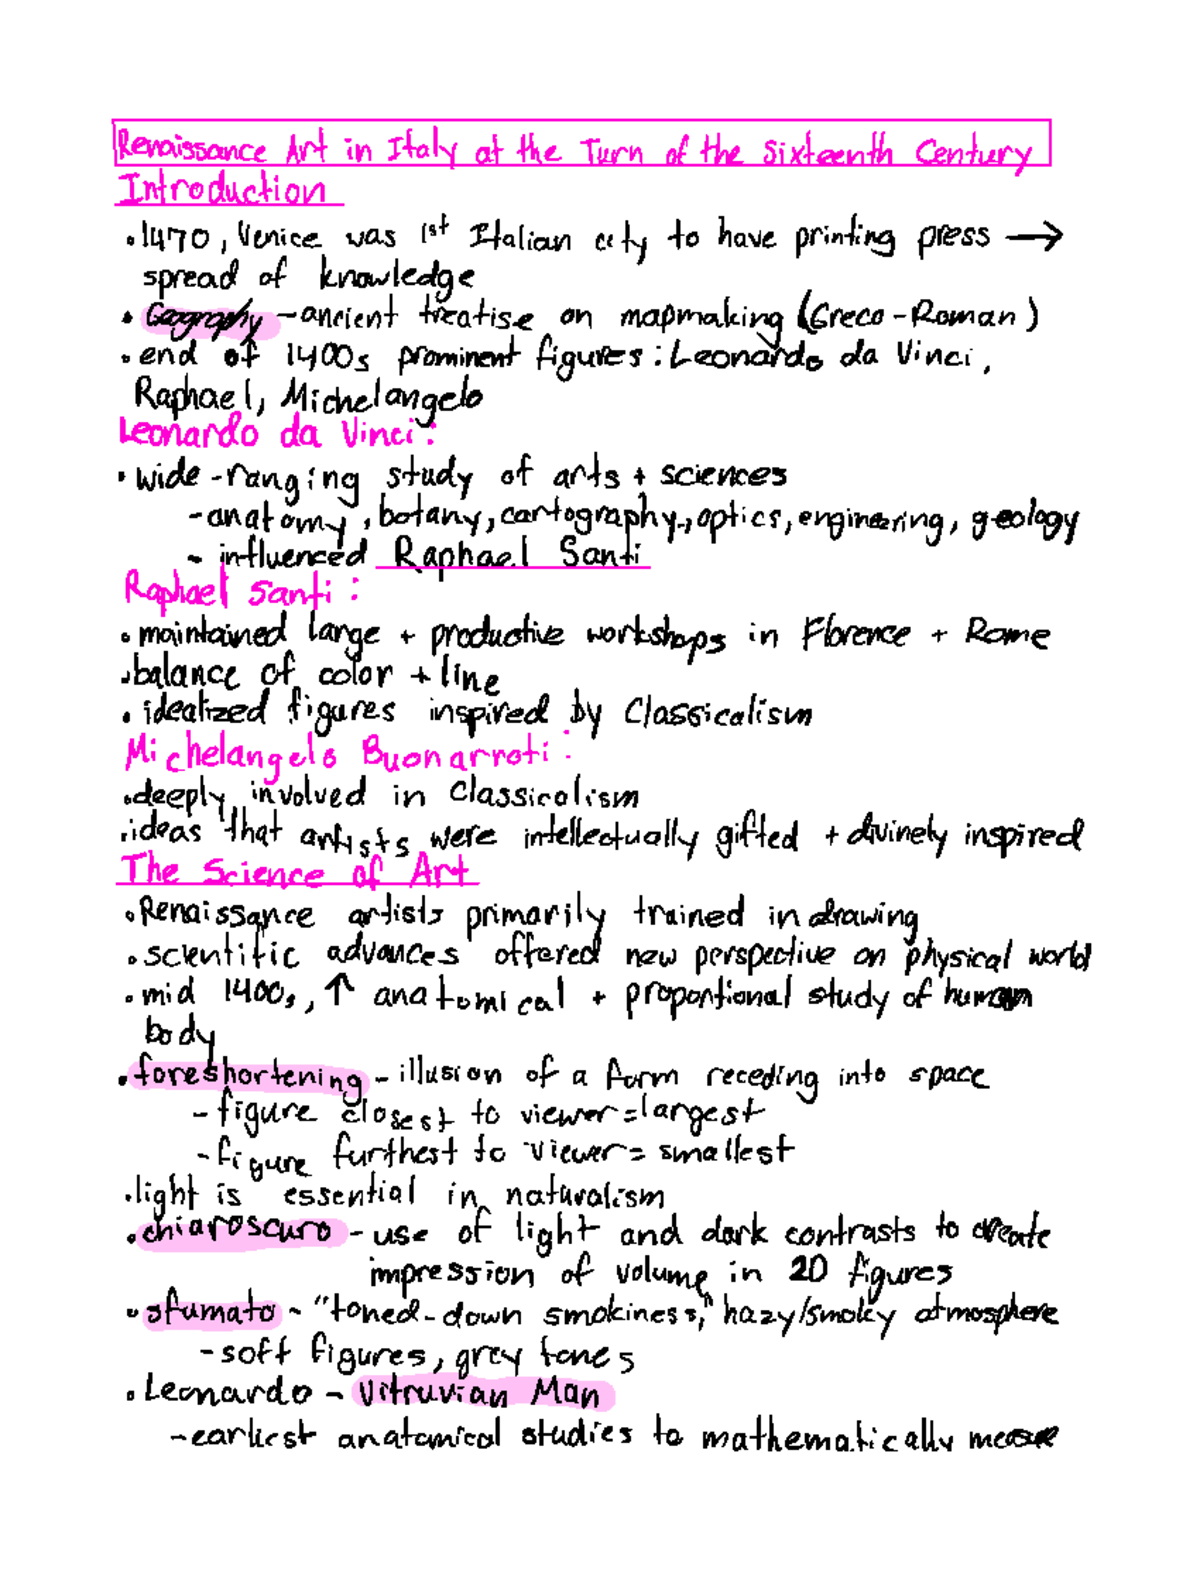 Renaissance Art in Italy at the Turn of the Sixteenth Century
Introduction
• 1470, Venice was 1st Italian city to have printing press →
spread of knowledge
• Geography - ancient treatise on mapmaking (Greco-Roman)
• end of 1400s prominent figures: Leonardo da Vinci,
Raphael, Michelangelo
Leonardo da Vinci:
• wide-ranging study of arts + sciences
- anatomy, botany, cartography, optics, engineering, geology
- influenced Raphael Santi
Raphael Santi:
• maintained large + productive workshops in Florence + Rome
• balance of color + line
• idealized figures inspired by Classicalism
Michelangelo Buonarroti:
• deeply involved in Classicalism
• ideas that artists were intellectually gifted + divinely inspired
The Science of Art
• Renaissance artists primarily trained in drawing
• scientific advances offered new perspective on physical world
• mid 1400s, ↑ anatomical + proportional study of human
body
• foreshortening - illusion of a form receding into space
- figure closest to viewer = largest
- figure furthest to viewer = smallest
• light is essential in naturalism
• chiaroscuro - use of light and dark contrasts to create
impression of volume in 2D figures
• sfumato - "toned-down smokiness," hazy/smoky atmosphere
- soft figures, grey tones
• Leonardo - Vitruvian Man
- earliest anatomical studies to mathematically measure